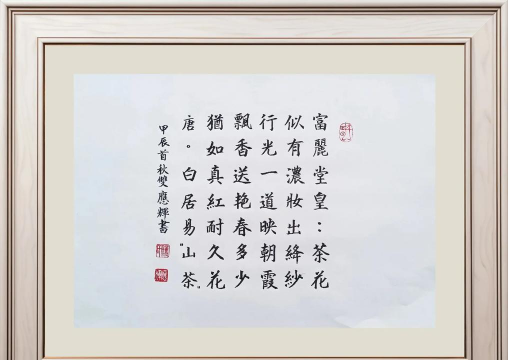 富麗堂皇：茶花
似有濃妝出絳紗
行光一道映朝霞
飄香送艳春多少
猶如真紅耐久花
唐。白居易"山茶"
甲辰首秋雙應輝書